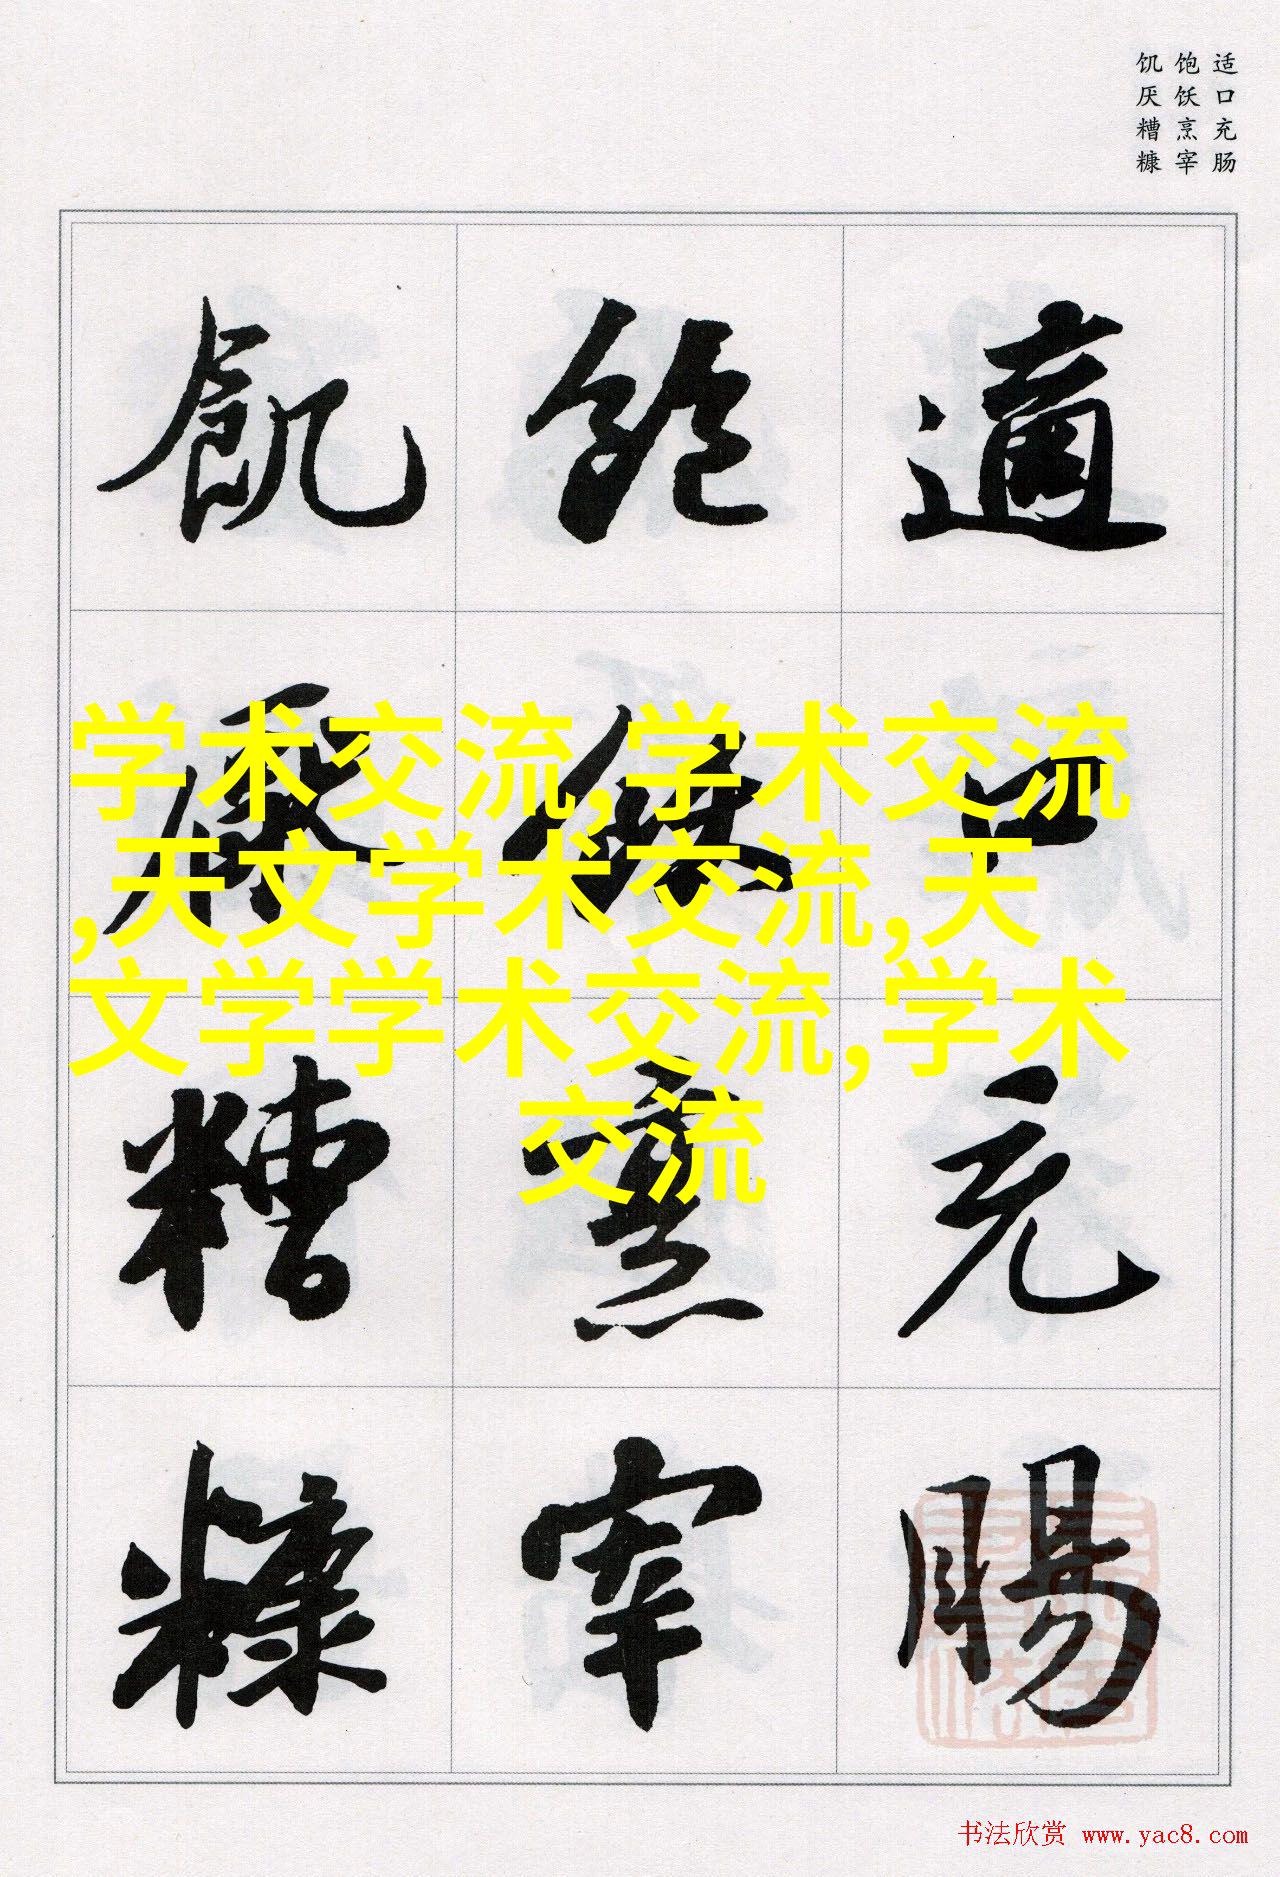 适口充肠
饱饫烹宰
饥厌糟糠
適口充腸
飽飫烹宰
飢厭糟糠
学术交流,学术交流
,天文学术交流,天
文学学术交流,学术
交流
书法欣赏 www.yac8.com